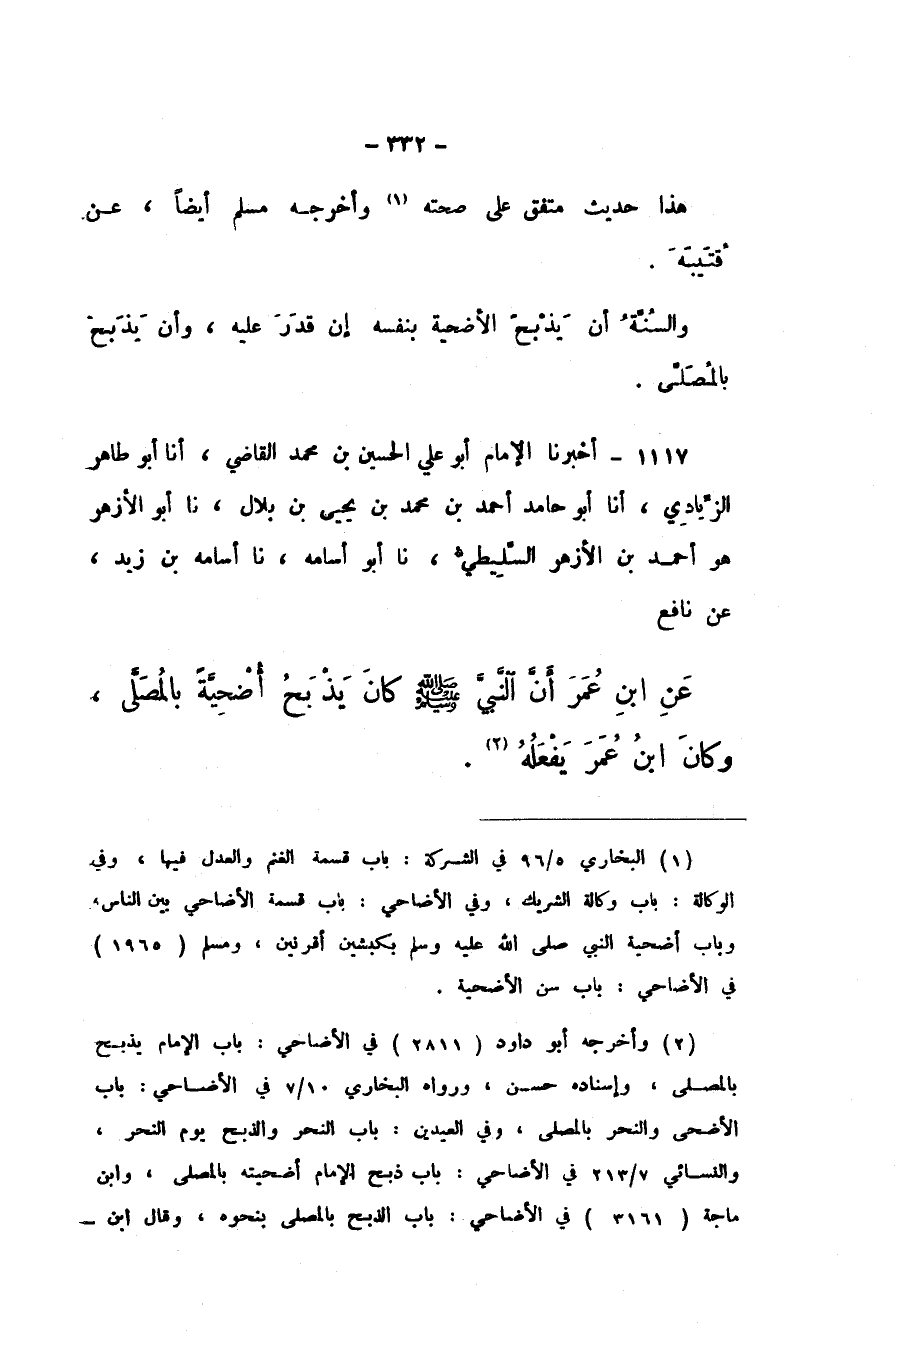 - ٣٣٢ -
هذا حديث متفق على صحته (١) وأخرجه مسلم أيضاً ، عن
قتَيبَة َ .
والسُنَّة ُ أن يَذْبَحَ الأضحية بنفسه إن قدَرَ عليه ، وأن يَذبَحَ
بالمُصَلَّى .
١١١٧ - أخبرنا الإمام أبو علي الحسين بن محمد القاضي ، أنا أبو طاهر
الزِّيادِي ، أنا أبو حامد أحمد بن محمد بن يحيى بن بلال ، نا أبو الأزهر
هو أحمد بن الأزهر السَّلِيطيُّ ، نا أبو أسامه ، نا أسامه بن زيد ،
عن نافع
عَنِ ابنِ عُمَرَ أَنَّ ٱلنَّبيَّ ﷺ كانَ يَذْبَحُ أُضْحِيَّةً بالمُصَلَّى ،
وكانَ ابنُ عُمَرَ يَفْعَلُهُ (٢) .
(١) البخاري ٩٦/٥ في الشركة : باب قسمة الغنم والعدل فيها ، وفي
الوكالة : باب وكالة الشريك ، وفي الأضاحي : باب قسمة الأضاحي بين الناس،
وباب أضحية النبي صلى الله عليه وسلم بكبشين أقرنين ، ومسلم ( ١٩٦٥ )
في الأضاحي : باب سن الأضحية .
(٢) وأخرجه أبو داود ( ٢٨١١ ) في الأضاحي : باب الإمام يذبح
بالمصلى ، وإسناده حسن ، ورواه البخاري ٧/١٠ في الأضاحي : باب
الأضحى والنحر بالمصلى ، وفي العيدين : باب النحر والذبح يوم النحر ،
والنسائي ٢١٣/٧ في الأضاحي : باب ذبح الإمام أضحيته بالمصلى ، وابن
ماجة ( ٣١٦١ ) في الأضاحي : باب الذبح بالمصلى بنحوه ، وقال ابن —